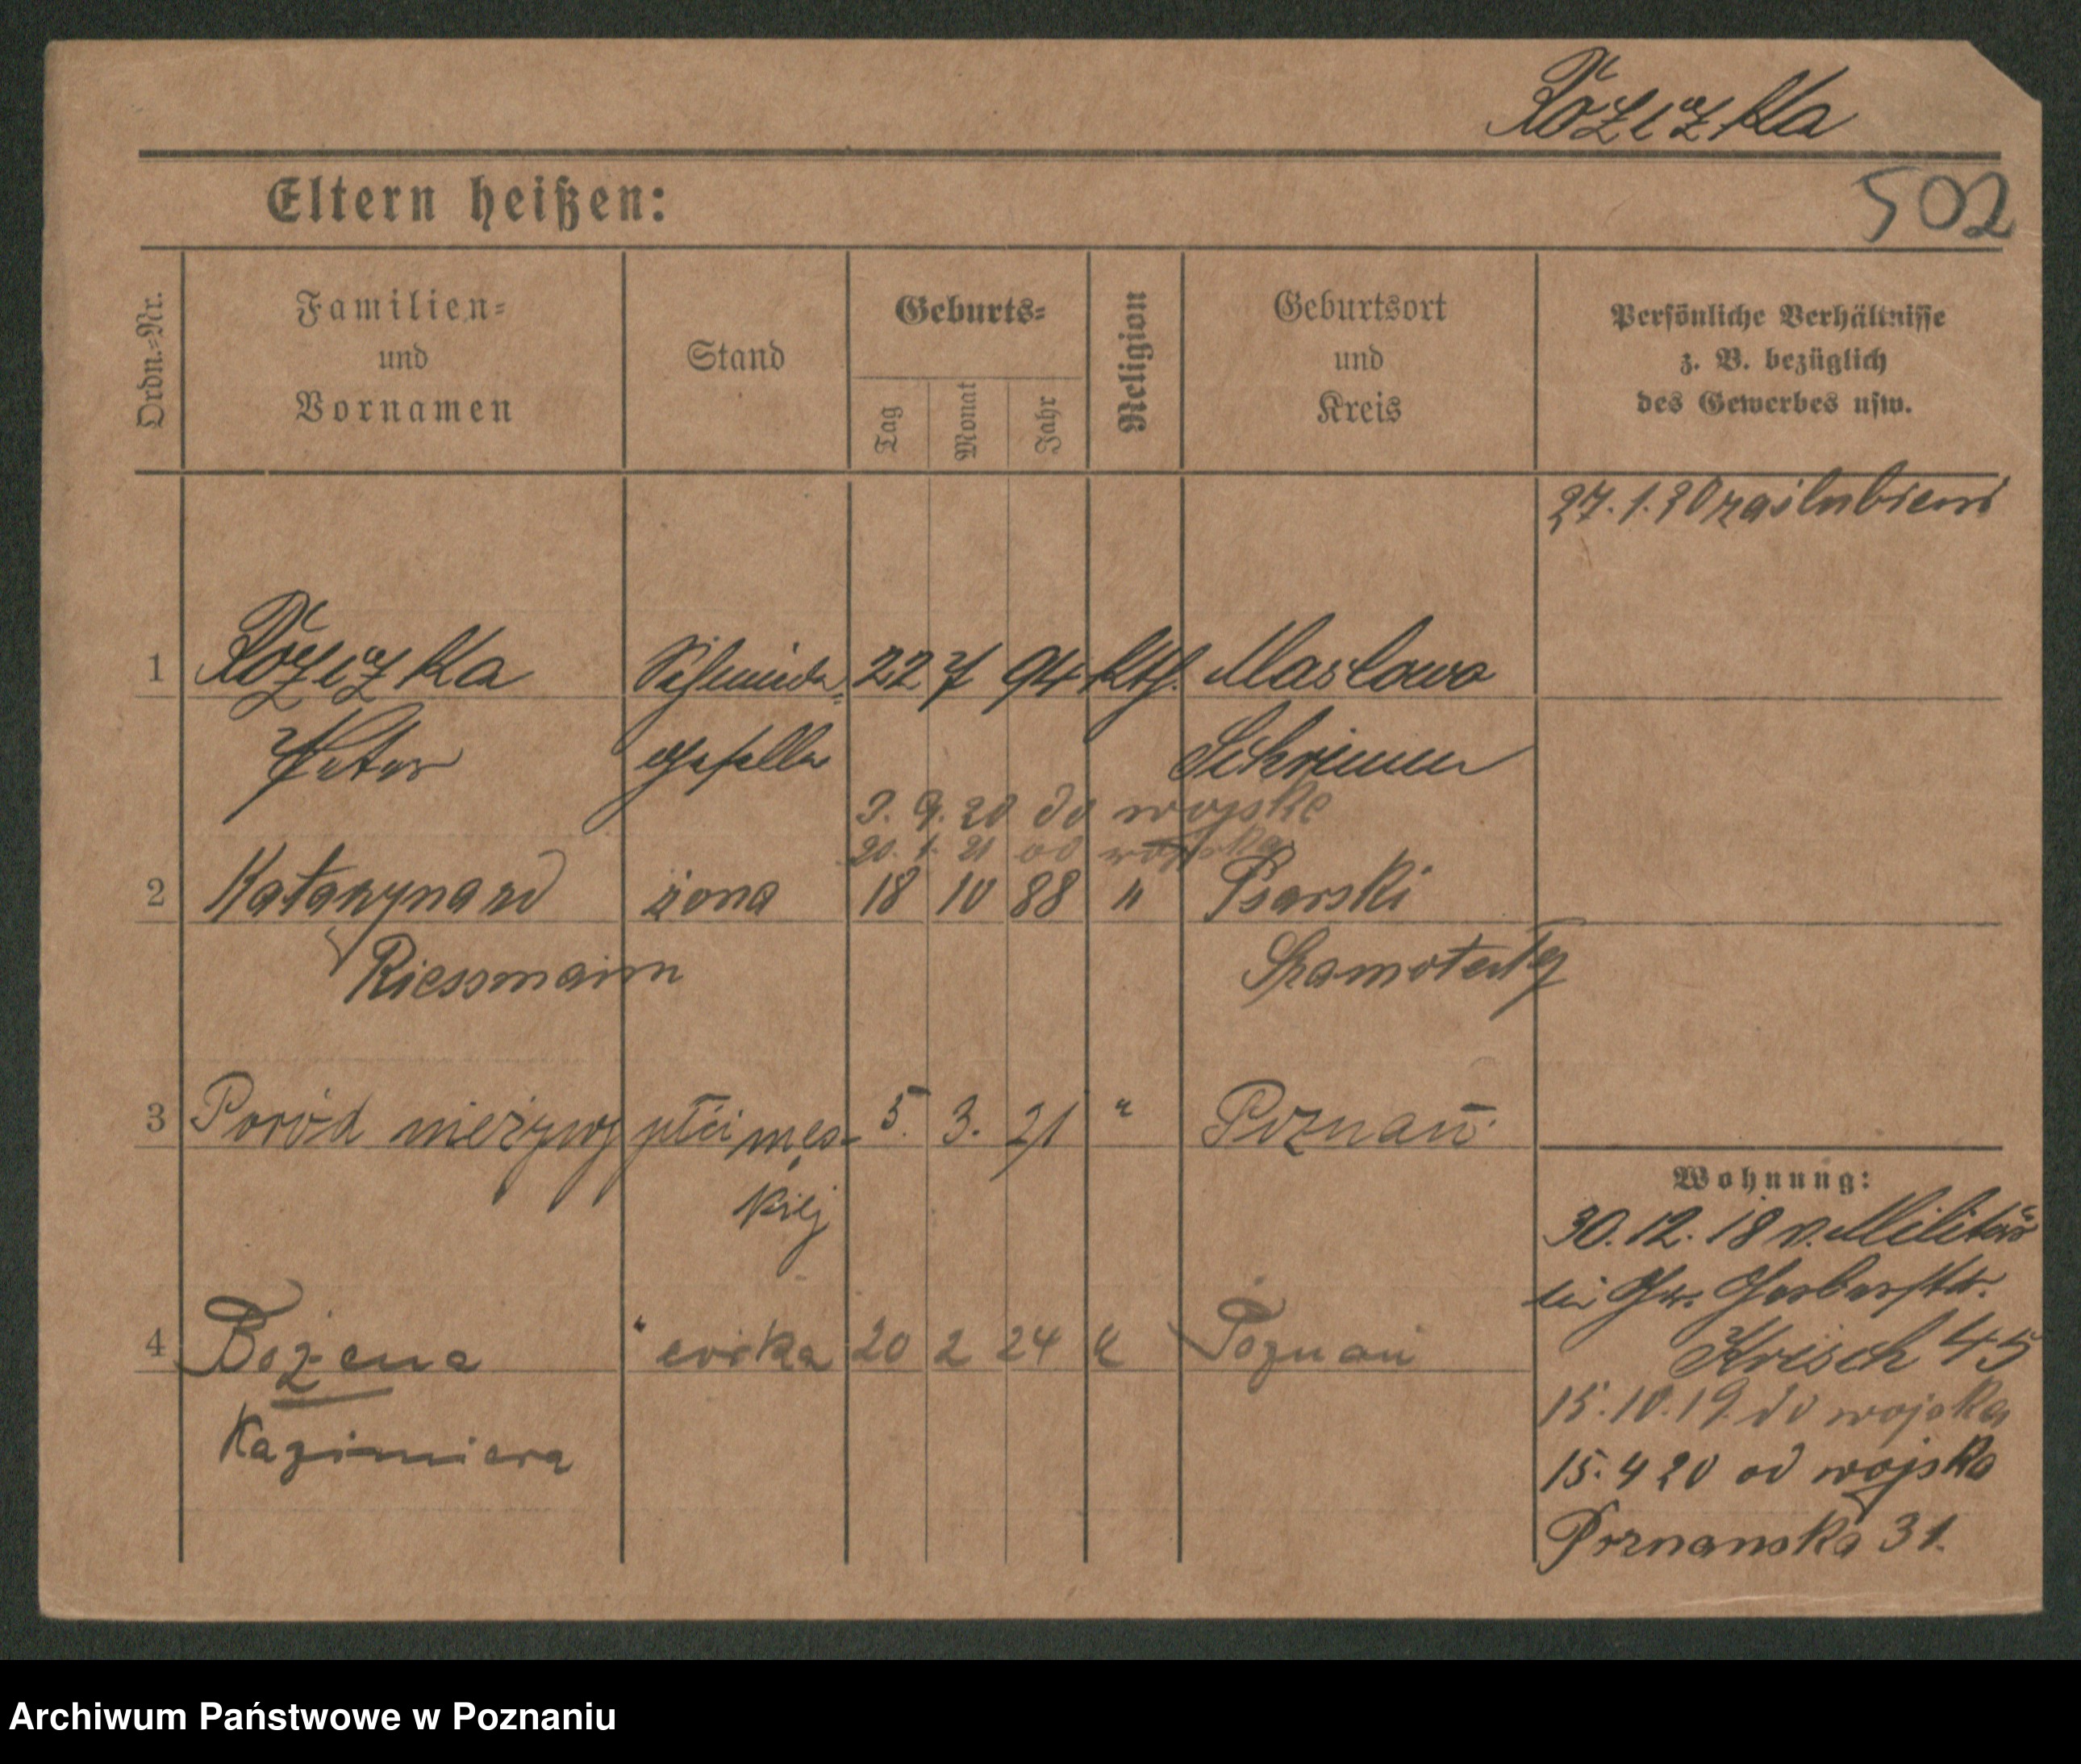 Różczka
Eltern heißen:
502
Ordn.-Nr.
Familien-
und
Vornamen
Stand
Geburts-
Tag
Monat
Jahr
Religion
Geburtsort
und
Kreis
Persönliche Verhältnisse
z. B. bezüglich
des Gewerbes usw.
27.1.20 zaślubieni
1 Schmiede- 22 7 94 kth. Maslowo
Peter geselle Schrimm
3. 9. 20 do wojska
20. 1. 21 od wojska
2 Katarzyna zd żona 18 10 88 " Psarski
Riessmann Szamotuły
3 Poród nieżywy płci męs- 5. 3. 21 " Poznań.
kiej
Wohnung:
30.12.18 v. Militär
Gr. Gerberstr.
4 Bożena córka 20 2 24 k Poznań
Krisch 45
Kazimiera
15.10.19. do wojska
15.4 20 od wojska
Poznańska 31.
Archiwum Państwowe w Poznaniu